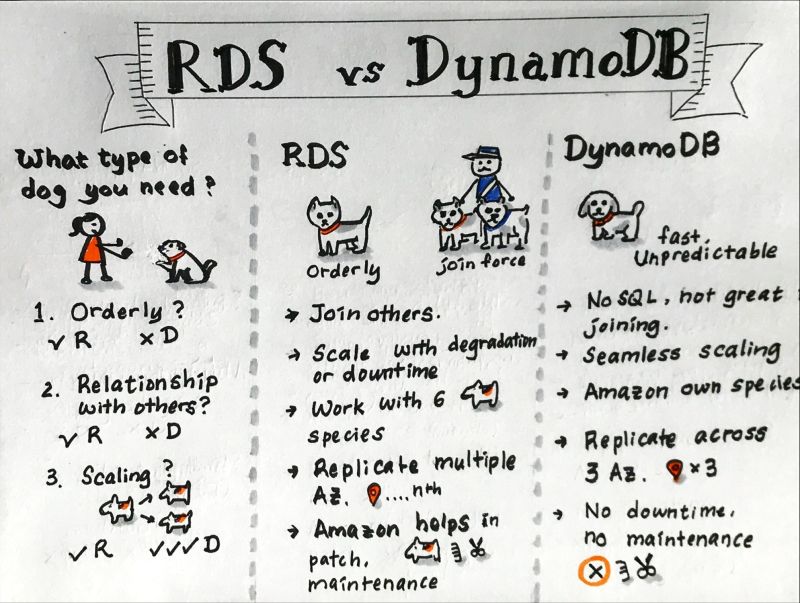 RDS vs DynamoDB
What type of
dog you need?
1. Orderly?
✓ R ✗ D
2. Relationship
with others?
✓ R ✗ D
3. Scaling?
✓ R ✓✓✓ D
RDS
Orderly
join force
→ Join others.
→ Scale with degradation
or downtime
→ Work with 6
species
→ Replicate multiple
AZ. ....nth
→ Amazon helps in
patch,
maintenance
DynamoDB
fast,
Unpredictable
→ No SQL, not great
joining.
→ Seamless scaling
→ Amazon own species
→ Replicate across
3 AZ. ×3
→ No downtime,
no maintenance